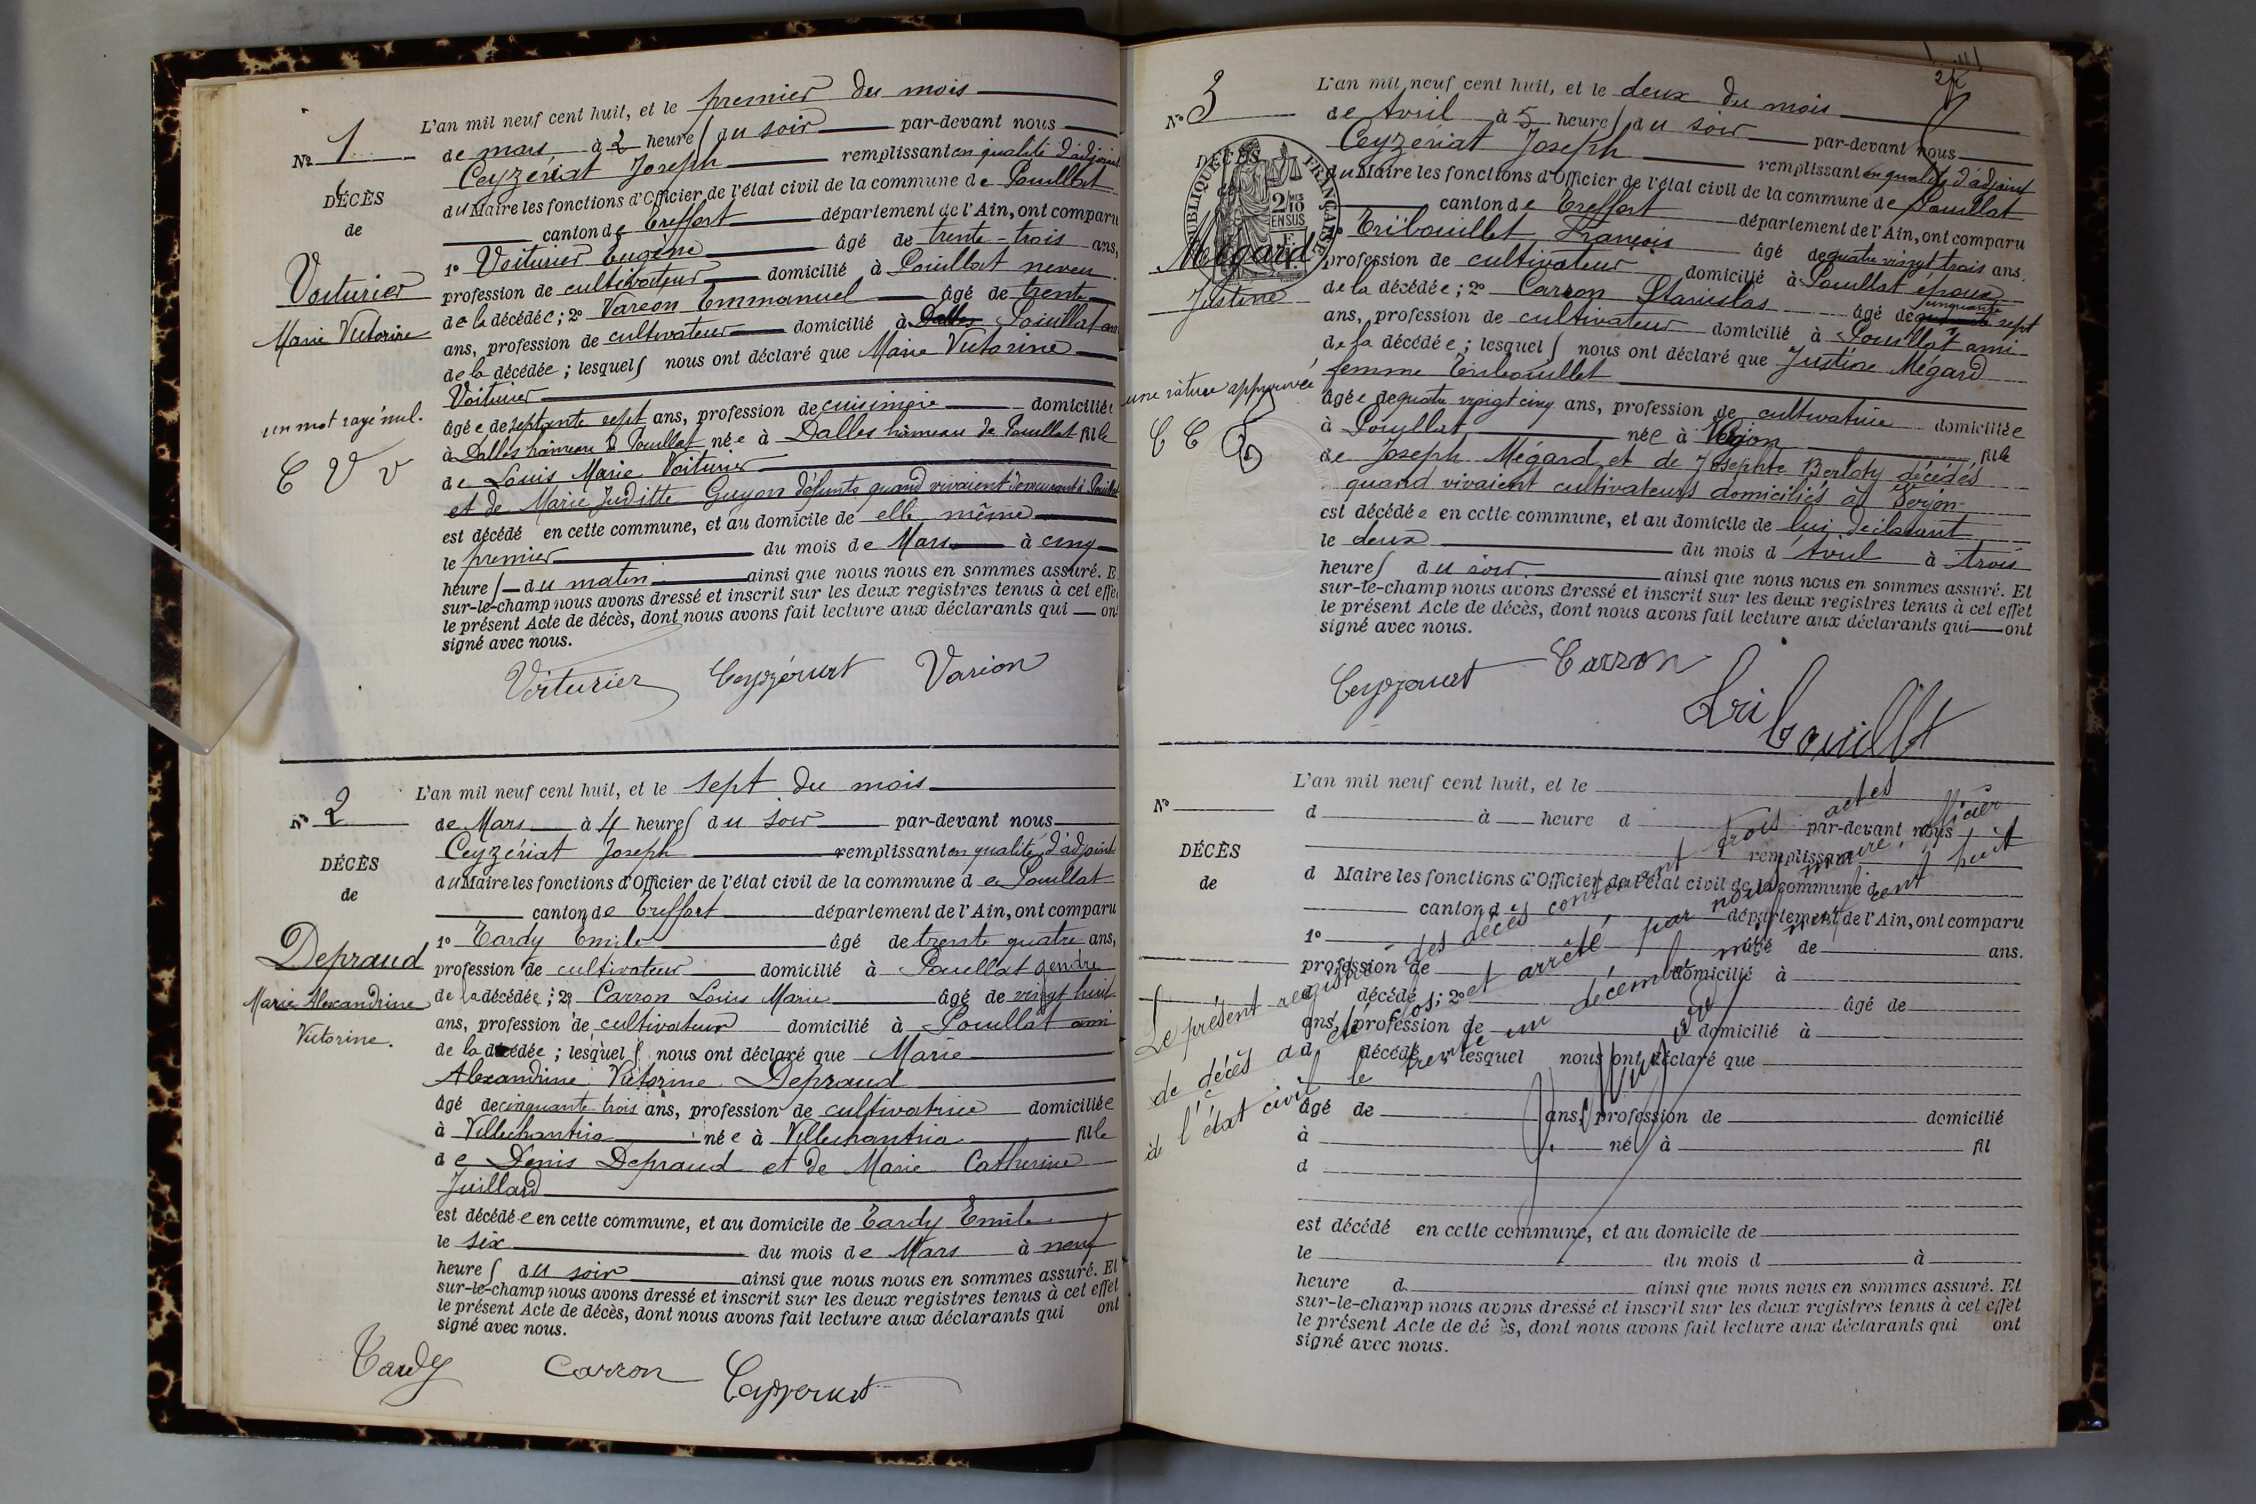 N° 1
DÉCÈS
de
Voiturier
Marie Victorine
un mot rayé nul.
C V V
L'an mil neuf cent huit, et le premier du mois
de mars à 2 heures du soir par-devant nous
Ceyzériat Joseph remplissant en qualité d'adjoint
du Maire les fonctions d'Officier de l'état civil de la commune de Pouillat
canton de Treffort département de l'Ain, ont comparu
1° Voiturier Eugène âgé de trente-trois ans,
profession de cultivateur domicilié à Pouillat neveu
de la décédée; 2° Varéon Emmanuel âgé de trente
ans, profession de cultivateur domicilié à Dalles Pouillat ami
de la décédée; lesquels nous ont déclaré que Marie Victorine
Voiturier
âgée de septante sept ans, profession de cuisinière domiciliée
à Dalles hâmeau de Pouillat née à Dalles hâmeau de Pouillat fille
de Louis Marie Voiturier
et de Marie Juditte Guyon défunts quand vivaient demeurant à Pouillat
est décédé en cette commune, et au domicile de elle même
le premier du mois de Mars à cinq
heures du matin ainsi que nous nous en sommes assuré. E
sur-le-champ nous avons dressé et inscrit sur les deux registres tenus à cet effe
le présent Acte de décès, dont nous avons fait lecture aux déclarants qui on
signé avec nous.
Voiturier Ceyzériat Varion
N° 2
DÉCÈS
de
Depraud
Marie Alexandrine
Victorine.
L'an mil neuf cent huit, et le sept du mois
de Mars à 4 heures du soir par-devant nous
Ceyzériat Joseph remplissant en qualité d'adjoint
du Maire les fonctions d'Officier de l'état civil de la commune de Pouillat
canton de Treffort département de l'Ain, ont comparu
1° Tardy Emile âgé de trente quatre ans,
profession de cultivateur domicilié à Pouillat gendre
de la décédée; 2° Carron Louis Marie âgé de vingt huit
ans, profession de cultivateur domicilié à Pouillat ami
de la décédée; lesquels nous ont déclaré que Marie
Alexandrine Victorine Depraud
âgé de cinquante trois ans, profession de cultivatrice domiciliée
à Villechantria née à Villechantria fille
de Denis Depraud et de Marie Catherine
Juillard
est décédée en cette commune, et au domicile de Tardy Emile
le six du mois de Mars à neuf
heures du soir ainsi que nous nous en sommes assuré. Et
sur-le-champ nous avons dressé et inscrit sur les deux registres tenus à cet effet
le présent Acte de décès, dont nous avons fait lecture aux déclarants qui ont
signé avec nous.
Tardy Carron Ceyzériat
N° 3
DÉCÈS
RÉPUBLIQUE FRANÇAISE
2/10
EN SUS
Mégard
Justine
une rature approuvée
C C
L'an mil neuf cent huit, et le deux du mois
de Avril à 5 heures du soir par-devant nous
Ceyzériat Joseph remplissant en qualité d'adjoint
du Maire les fonctions d'Officier de l'état civil de la commune de Pouillat
canton de Treffort département de l'Ain, ont comparu
1° Tribouillet François âgé de quatre vingt trois ans.
profession de cultivateur domicilié à Pouillat époux
de la décédée; 2° Carron Stanislas âgé de cinquante sept
ans, profession de cultivateur domicilié à Pouillat ami
de la décédée; lesquels nous ont déclaré que Justine Mégard
femme Tribouillet
âgée de quatre vingt cinq ans, profession de cultivatrice domiciliée
à Pouillat née à Verjon fille
de Joseph Mégard et de Josephte Berloty décédés
quand vivaient cultivateurs domiciliés à Verjon
est décédée en cette commune, et au domicile de lui déclarant
le deux du mois d'Avril à trois
heures du soir ainsi que nous nous en sommes assuré. Et
sur-le-champ nous avons dressé et inscrit sur les deux registres tenus à cet effet
le présent Acte de décès, dont nous avons fait lecture aux déclarants qui ont
signé avec nous.
Ceyzériat Carron
Tribouillet
N°
DÉCÈS
de
L'an mil neuf cent huit, et le
d à heure d par-devant nous
remplissant
d Maire les fonctions d'Officier de l'état civil de la commune d
canton d département de l'Ain, ont comparu
1° âgé de ans.
profession de domicilié à
d décédé; 2° âgé de
ans, profession de domicilié à
d décédé lesquel nous ont déclaré que
âgé de ans, profession de domicilié
à né à fil
d
est décédé en cette commune, et au domicile de
le du mois d à
heure d ainsi que nous nous en sommes assuré. Et
sur-le-champ nous avons dressé et inscrit sur les deux registres tenus à cet effet
le présent Acte de dé ès, dont nous avons fait lecture aux déclarants qui ont
signé avec nous.
Le présent registre des décès contenant trois actes
de décès a été clos et arrêté par nous maire, officier
de l'état civil le trente un décembre mil neuf cent huit